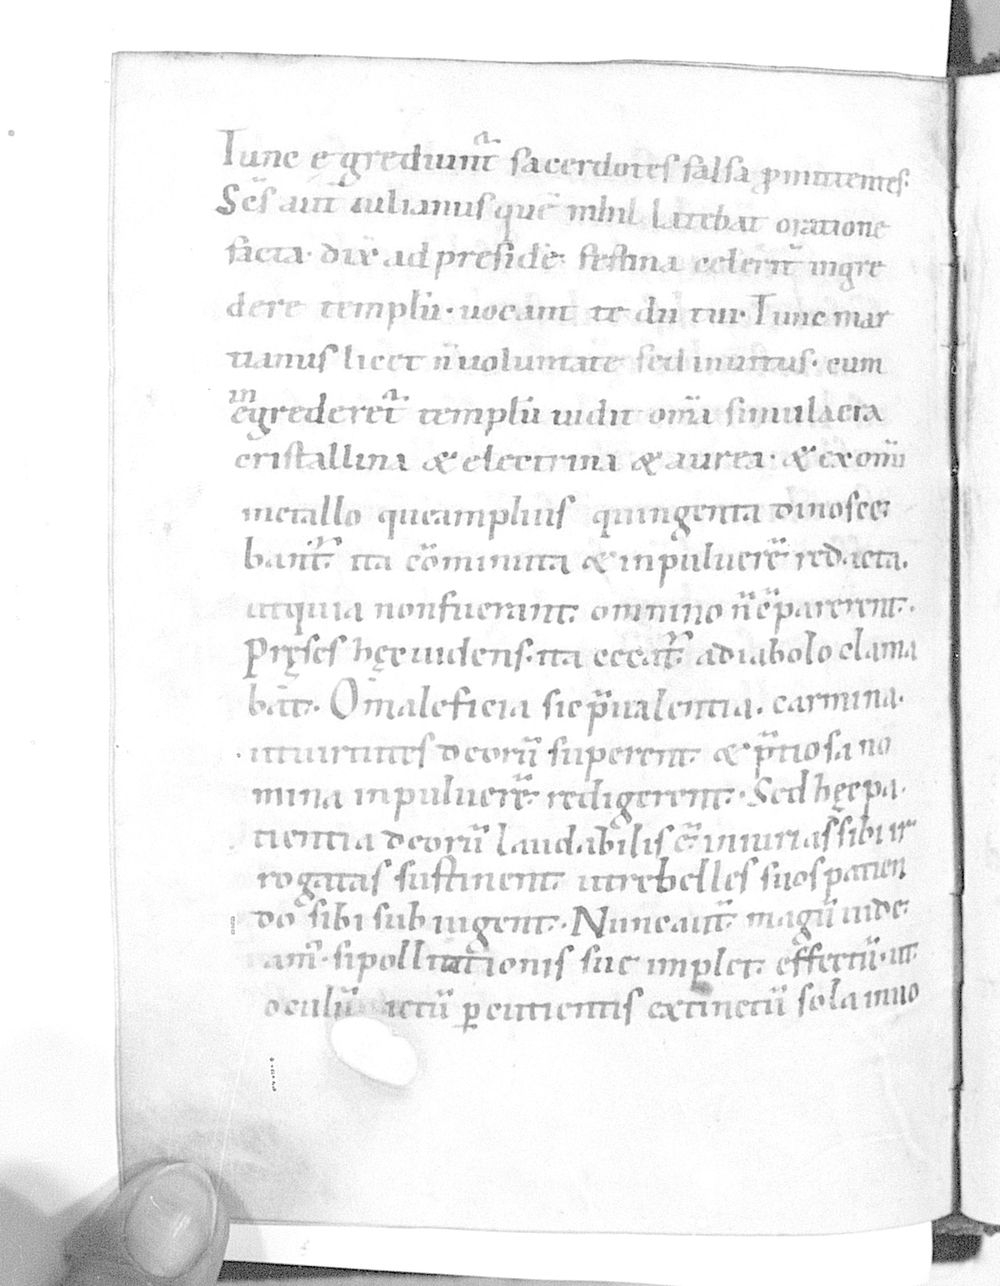 Tunc egrediunt̃ sacerdotes falsa ꝓmittentes.
Sc̄s aut̄ iulianus quē nihil latebat oratione
facta. dix̄ ad presidē. festina celerit̄ ingre
dere templū. uocant te dii tui. Tunc mar
tianus licet n̄ uoluntate sed inuitus. cum
ingrederet̃ templū uidit om̄ia simulacra
cristallina & electrina & aurea. & ex omī
metallo que amplius quingenta dinosce
bant̃. ita cōminuta & in puluerē redacta.
ut quia non fuerant. omnino n̄ cōparerent.
Pręses hęc uidens. ita cecat̃. a diabolo clama
bat. O maleficia sic p̄ualentia. carmina.
ut uirtutes deorū superent. & p̄tiosa no
mina in puluerē redigerent. Sed hęc pa
tientia deorū laudabilis ē. iniurias sibi ir
rogatas sustinent. ut rebelles suos patien
do sibi subiugent. Nunc aut̄ magū uide
am̄. si pollicitationis suę implet effectū. ut
oculū ictū ꝑcutientis extinctū sola inuo